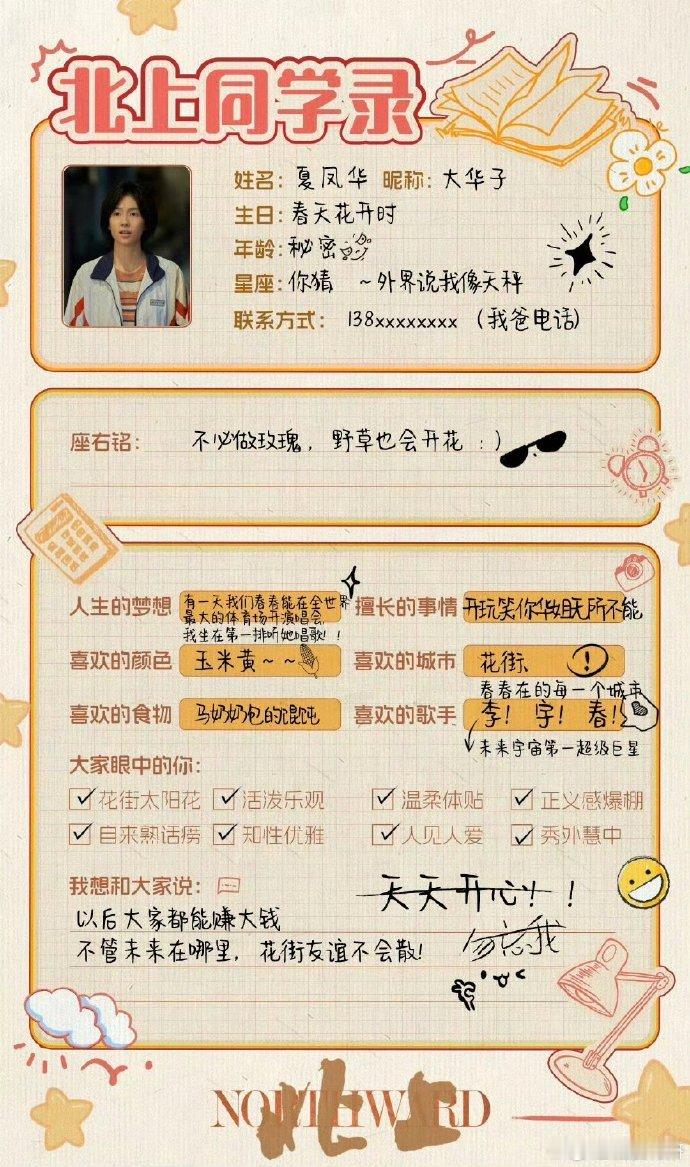 北上同学录
姓名：夏凤华 昵称：大华子
生日：春天花开时
年龄：秘密
星座：你猜 ~外界说我像天秤
联系方式： 138xxxxxxxx （我爸电话）
座右铭： 不必做玫瑰，野草也会开花 :)
人生的梦想 有一天我们春春能在全世界
最大的体育场开演唱会，
我坐在第一排听她唱歌！！
擅长的事情 开玩笑你华姐无所不能
喜欢的颜色 玉米黄~~
喜欢的城市 花街、 !
春春在的每一个城市
喜欢的食物 马奶奶包的馄饨
喜欢的歌手 李！宇！春！
未来宇宙第一超级巨星
大家眼中的你：
花街太阳花 活泼乐观 温柔体贴 正义感爆棚
自来熟话痨 知性优雅 人见人爱 秀外慧中
我想和大家说：
天天开心！！
以后大家都能赚大钱
不管未来在哪里，花街友谊不会散！
勿忘我
NORTHWARD
北上